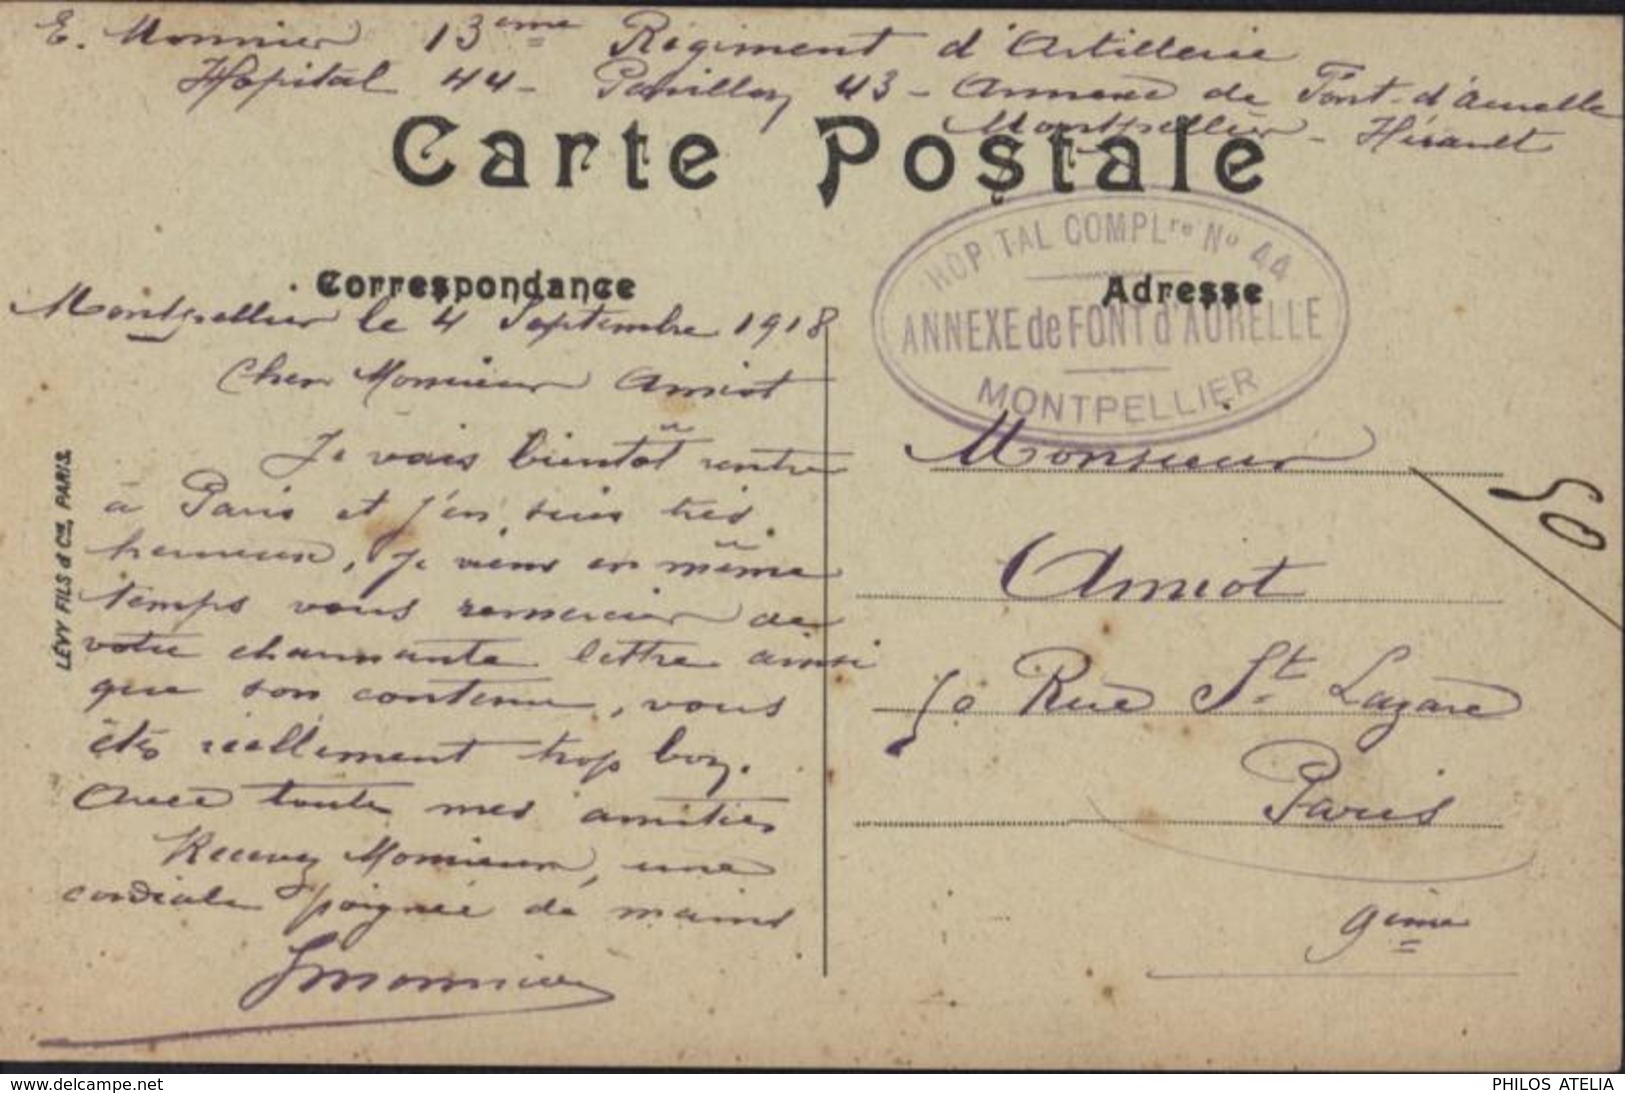 E. Monnier 13ème Régiment d'Artillerie
Hopital 44 - Pavillon 43 - Annexe de Font-d'Aurelle
Montpellier - Hérault
Carte Postale
HOPITAL COMPLre No 44
ANNEXE de FONT d'AURELLE
MONTPELLIER
Correspondance
Adresse
Montpellier le 4 Septembre 1918
Cher Monsieur Amiot
Je vais bientôt rentrer
à Paris et j'en suis très
heureux, je viens en même
temps vous remercier de
votre charmante lettre ainsi
que son contenu, vous
êtes réellement trop bon.
Avec toute mes amitiés
Recevez Monsieur, une
cordiale poignée de mains
Monnier
LÉVY FILS & Cie, PARIS
Monsieur
Amiot
50 Rue St Lazare
Paris
9ème
50
www.delcampe.net
PHILOS ATELIA